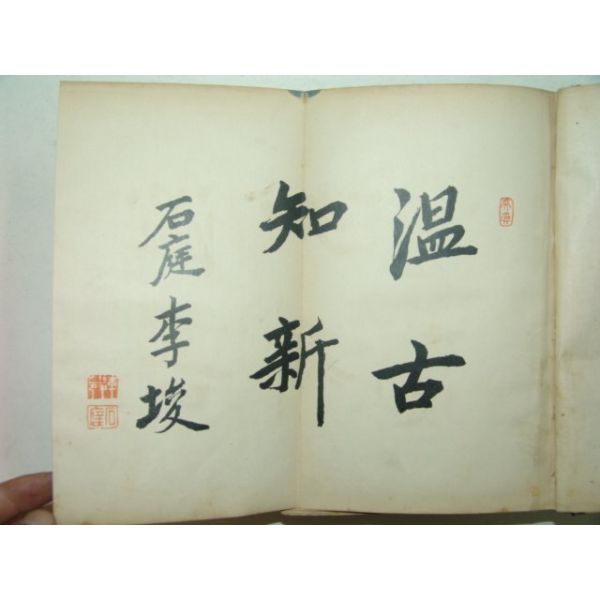 温古
知新
石庭 李埈